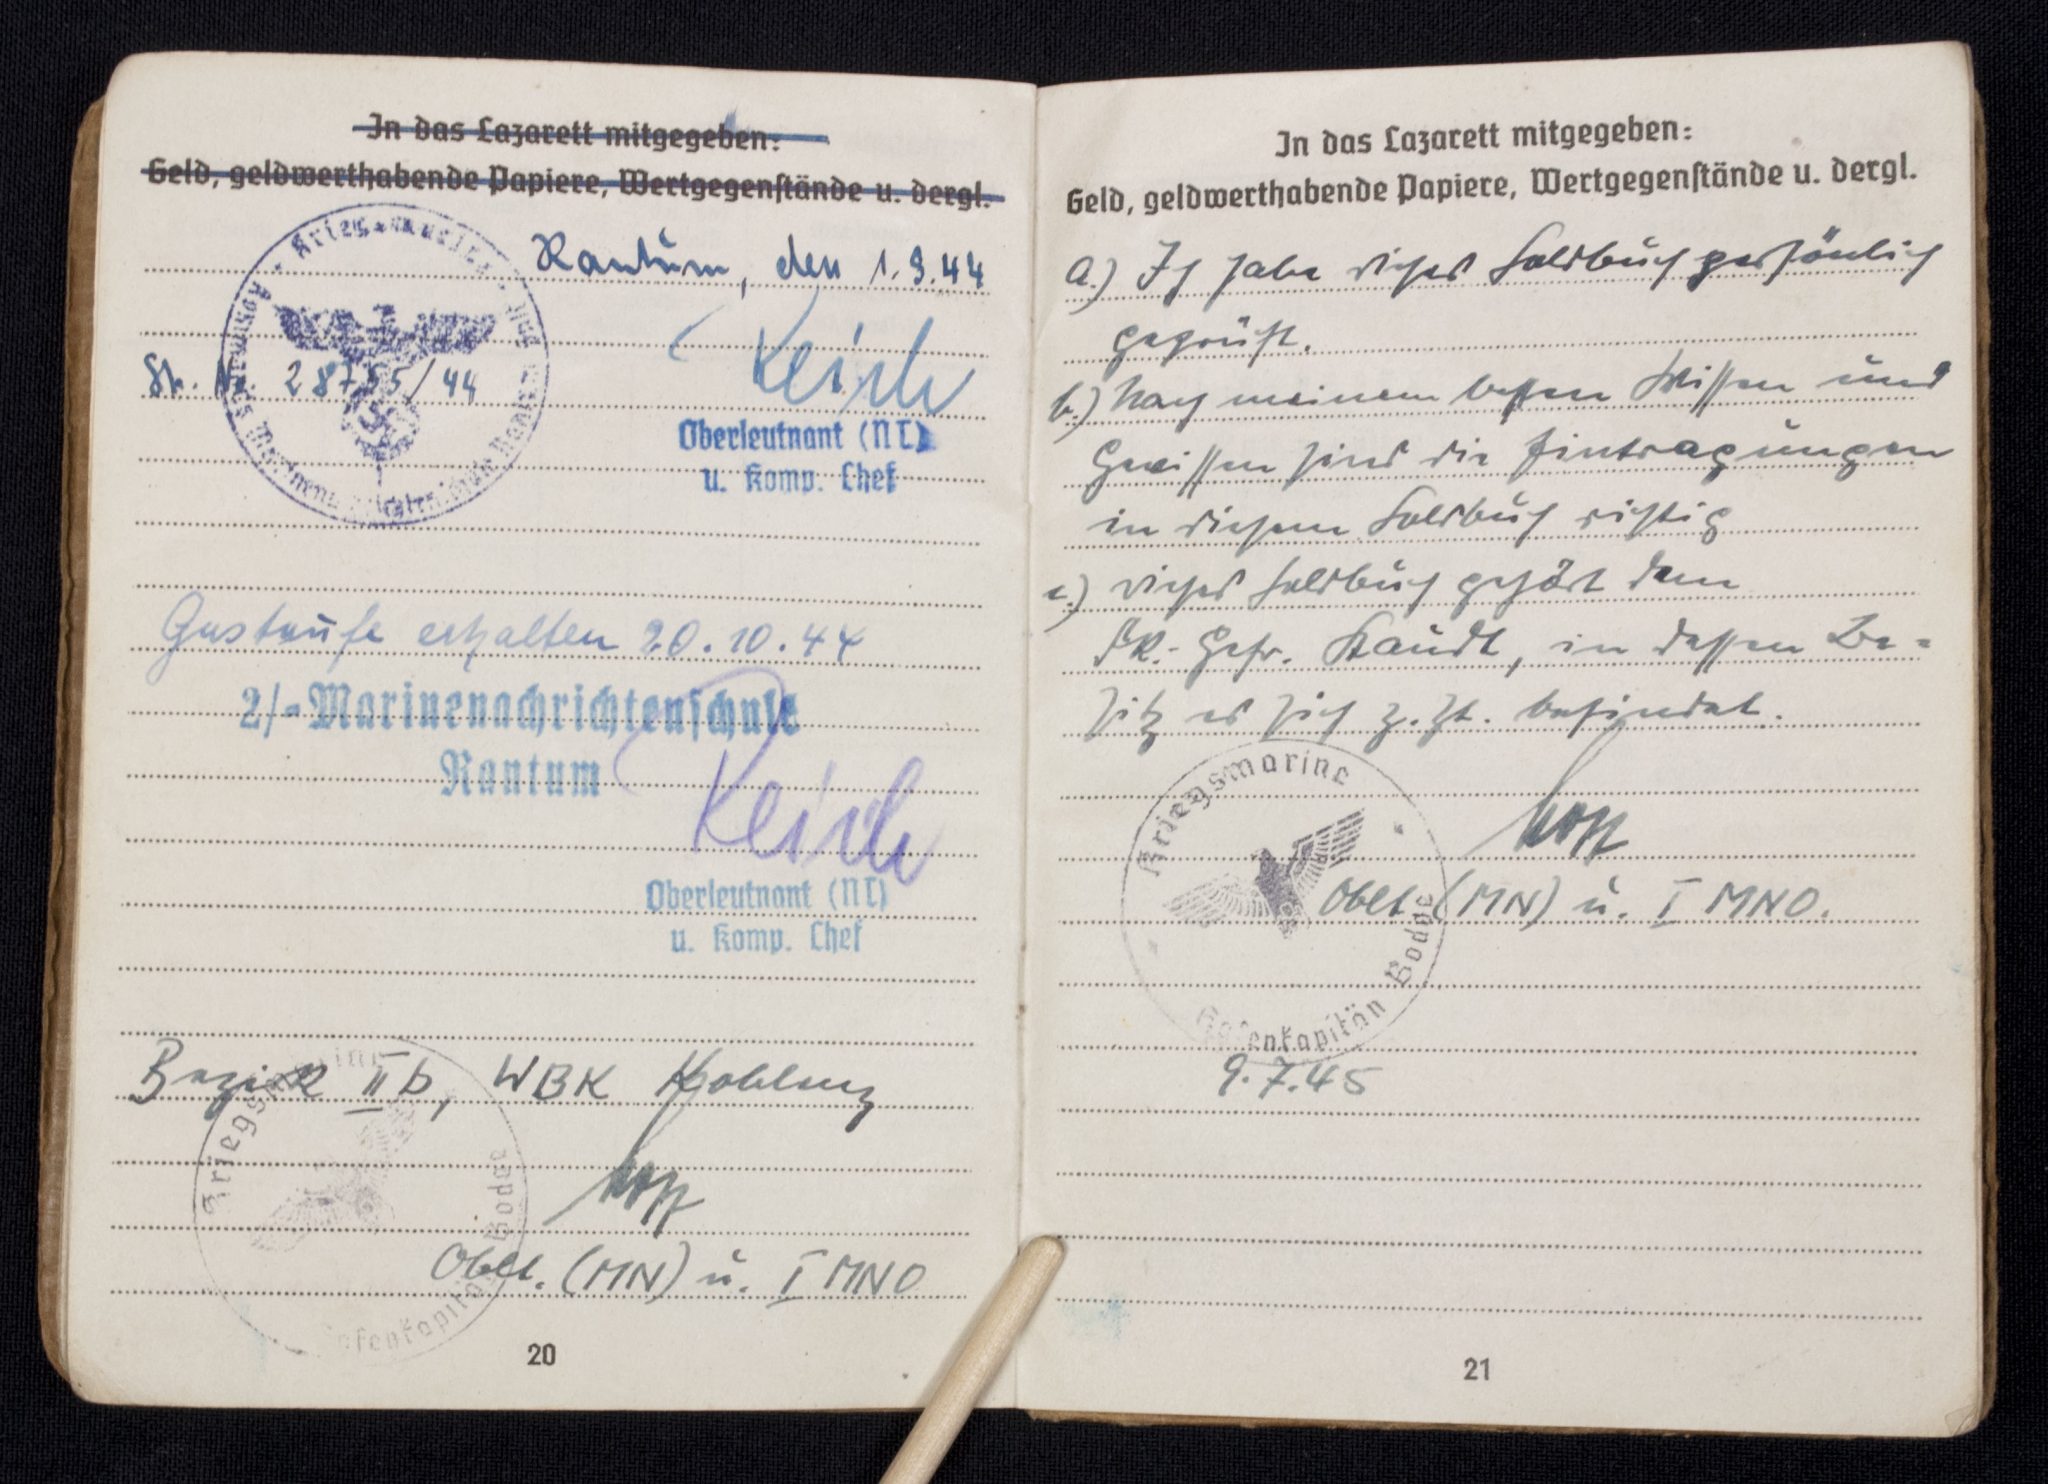 In das Lazarett mitgegeben:
Geld, geldwerthabende Papiere, Wertgegenstände u. dergl.
Rantum, den 1.9.44
28755/44
Oberleutnant (NT)
u. Komp. Chef
Gustaufe erhalten 20.10.44
2/-Marinenachrichtenschule
Rantum
Oberleutnant (NT)
u. Komp. Chef
Kriegsmarine
Hafenkapitän Bodoe
Bezirk II b, WBK Koblenz
Oblt. (MN) u. I MNO
20
In das Lazarett mitgegeben:
Geld, geldwerthabende Papiere, Wertgegenstände u. dergl.
a.) Ich habe dieses Soldbuch persönlich
geprüft.
b.) Nach meinem besten Wissen und
Gewissen sind die Eintragungen
in diesem Soldbuch richtig
c.) dieses Soldbuch gehört dem
Fk.-Gefr. Staudt, in dessen Be-
sitz es sich z. Zt. befindet.
Kriegsmarine
Hafenkapitän Bodoe
Oblt. (MN) u. I MNO.
9.7.45
21